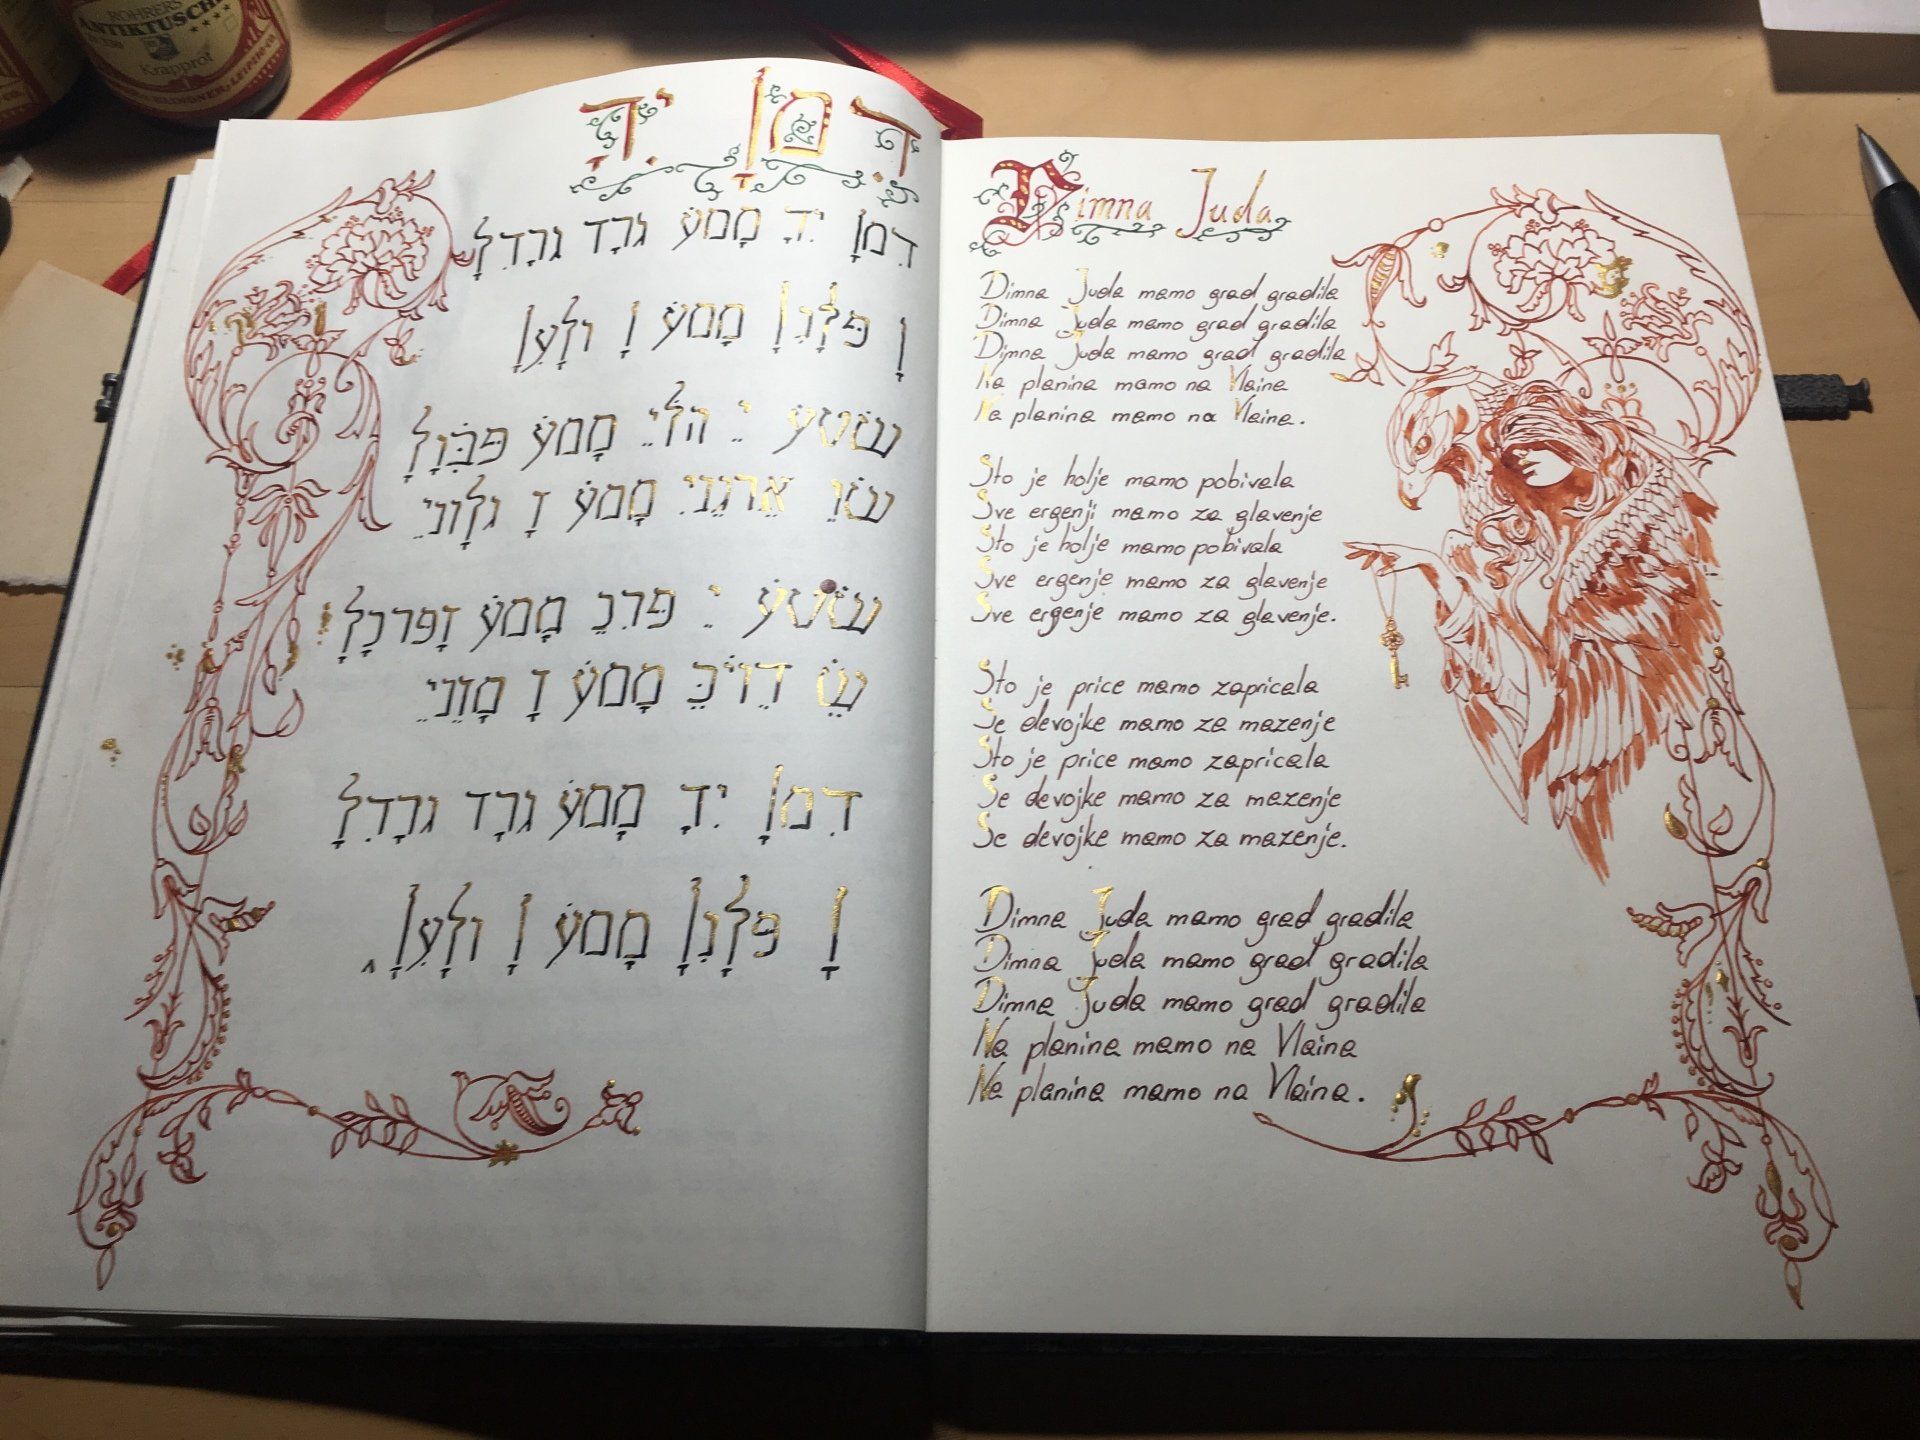 ROHRERS
ANTIKTUSCHE
Krapprot
דִמןָ יִדָ
דִמןָ יִדָ מָמעֹ גרָד גרָדִלָ
ןָ פּלָנִןָ מָמעֹ ןָ ולָעִןָ
שׂטעֹ יֵ הלֹיֵ מָמעֹ פּבִּוָלָ
שׂוֵ אֵרגֵנִי מָמעֹ זָ גלָוֵניֵ
שׂטעֹ יֵ פּרִכֵ מָמעֹ זָפּרכָלָ
שֵׂ דֵויֹכֵּ מָמעֹ זָ מָזֵניֵ
דִמןָ יִדָ מָמעֹ גרָד גרָדִלָ
ןָ פּלָנִןָ מָמעֹ ןָ ולָעִןָ
Dimna Juda
Dimna Juda mamo grad gradila
Dimna Juda mamo grad gradila
Dimna Juda mamo grad gradila
Na planina mamo na Vlaina
Na planina mamo na Vlaina.
Sto je holje mamo pobivala
Sve ergenji mamo za glavenje
Sto je holje mamo pobivala
Sve ergenje mamo za glavenje
Sve ergenje mamo za glavenje.
Sto je price mamo zapricala
Se devojke mamo za mazenje
Sto je price mamo zapricala
Se devojke mamo za mazenje
Se devojke mamo za mazenje.
Dimna Juda mamo grad gradila
Dimna Juda mamo grad gradila
Dimna Juda mamo grad gradila
Na planina mamo na Vlaina
Na planina mamo na Vlaina.